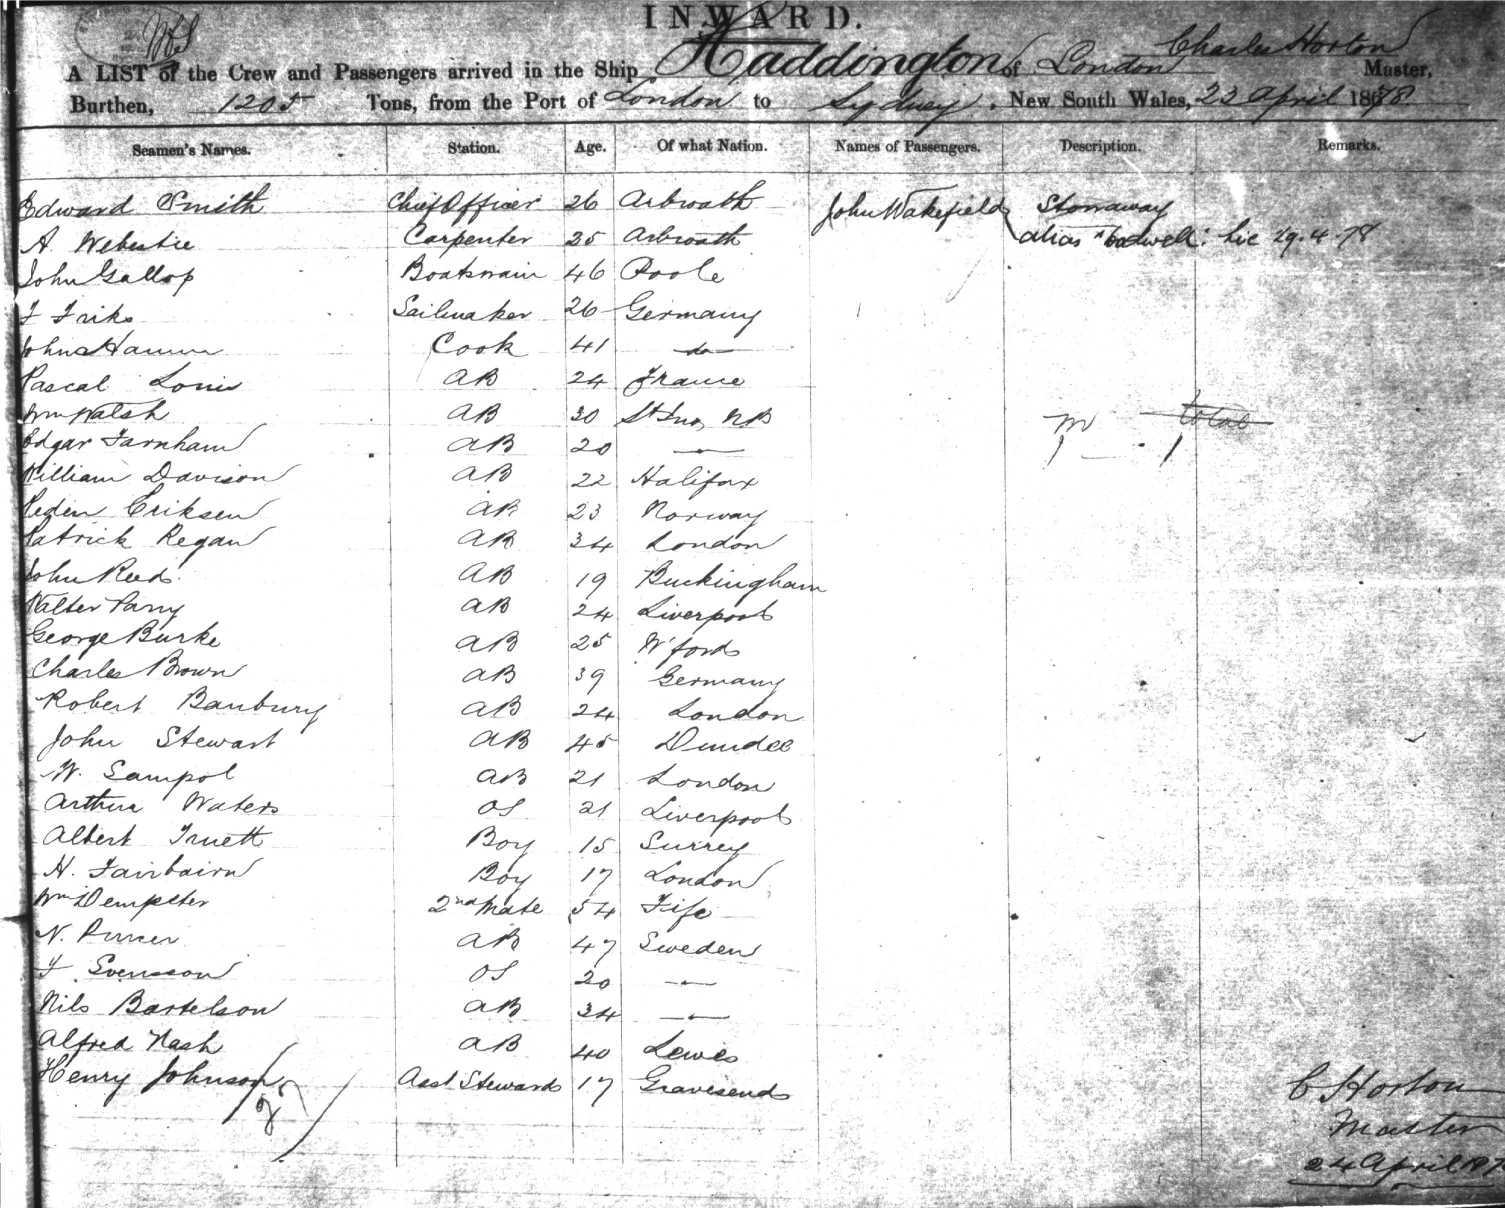 INWARD.
A LIST of the Crew and Passengers arrived in the Ship Haddington of London Charles Horton Master,
Burthen, 1205 Tons, from the Port of London to Sydney, New South Wales, 23 April 1878.
Seamen's Names. Station. Age. Of what Nation. Names of Passengers. Description. Remarks.
Edward Smith Chief Officer 26 Arbroath John Wakefield Stowaway
A. Carpenter 25 Arbroath alias
John Gallop Boatswain 46 Poole
Sailmaker 26 Germany
John Cook 41 do
Pascal Louis AB 24 France
Wm Walsh AB 30 NB
Edgar Farnham AB 20 —
William Davison AB 22 Halifax
Eriksen AB 23 Norway
Patrick Regan AB 34 London
John Reeds AB 19 Buckingham
Walter Parry AB 24 Liverpool
George Burke AB 25 W'ford
Charles Brown AB 39 Germany
Robert Banbury AB 24 London
John Stewart AB 45 Dundee
W. Sampol AB 21 London
Arthur Waters OS 21 Liverpool
Albert Truett Boy 15 Surrey
H. Fairbairn Boy 17 London
Wm Dempster 2nd Mate 54 Fife
N. AB 47 Sweden
Svensson OS 20 —
Nils Bartelson AB 34 —
Alfred Nash AB 40 Lewes
Henry Johnson Asst Steward 17 Gravesend
27
M total
1 1
C Horton
Master
24 April 187